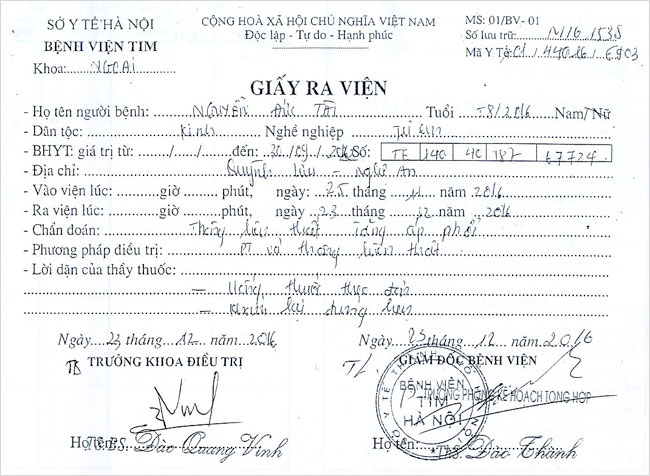 SỞ Y TẾ HÀ NỘI
BỆNH VIỆN TIM
Khoa: NGOẠI
CỘNG HOÀ XÃ HỘI CHỦ NGHĨA VIỆT NAM
Độc lập - Tự do - Hạnh phúc
MS: 01/BV- 01
Số lưu trữ: N116.1538
Mã Y Tế: 01/440.16/6903
GIẤY RA VIỆN
- Họ tên người bệnh: NGUYỄN ĐỨC TÀI Tuổi T8/2016 Nam/Nữ
- Dân tộc: Kinh Nghề nghiệp
- BHYT: giá trị từ:....../....../...... đến: 30/09/ Số: TE 140 40 187 67724
- Địa chỉ: Quỳnh Lưu - Nghệ An
- Vào viện lúc: giờ phút, ngày: 25 tháng 11 năm 2016
- Ra viện lúc: giờ phút, ngày 23 tháng 12 năm 2016
- Chẩn đoán: Thông liên thất Tăng áp phổi
- Phương pháp điều trị: PT vá thông liên thất
- Lời dặn của thầy thuốc:
- Uống thuốc theo đơn
- Khám lại đúng hẹn
Ngày 23 tháng 12 năm 2016
TRƯỞNG KHOA ĐIỀU TRỊ
Họ tên: BS. Đào Quang Vinh
Ngày 23 tháng 12 năm 2016
TL. GIÁM ĐỐC BỆNH VIỆN
TRƯỞNG PHÒNG KẾ HOẠCH TỔNG HỢP
BỆNH VIỆN
TIM
HÀ NỘI
Họ tên: ThS. Đào Thành